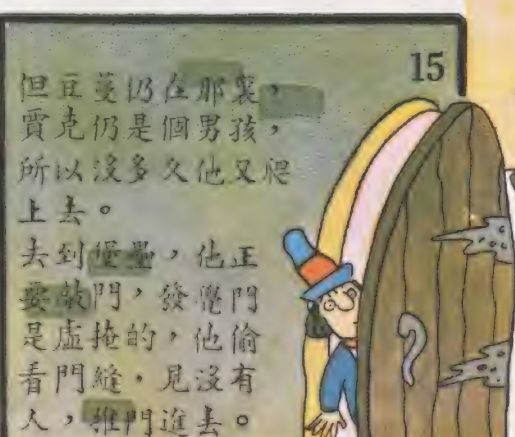 15
但豆蔓仍在那裏，
賈克仍是個男孩，
所以沒多久他又爬
上去。
去到堡壘，他正
要敲門，發覺門
是虛掩的，他偷
看門縫，見沒有
人，推門進去。